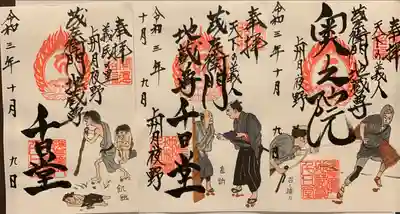 奉拝
義民の里
上州月夜野
茂左衛門地蔵尊
千日堂
令和三年十月 九日
飢饉
奉拝
天下の義人
茂左衛門
地蔵尊千日堂
上州月夜野
令和三年
十月 九日
直訴
奉拝
天下の義人
茂左衛門地蔵尊
奥之院
上州月夜野
令和三年十月 九日